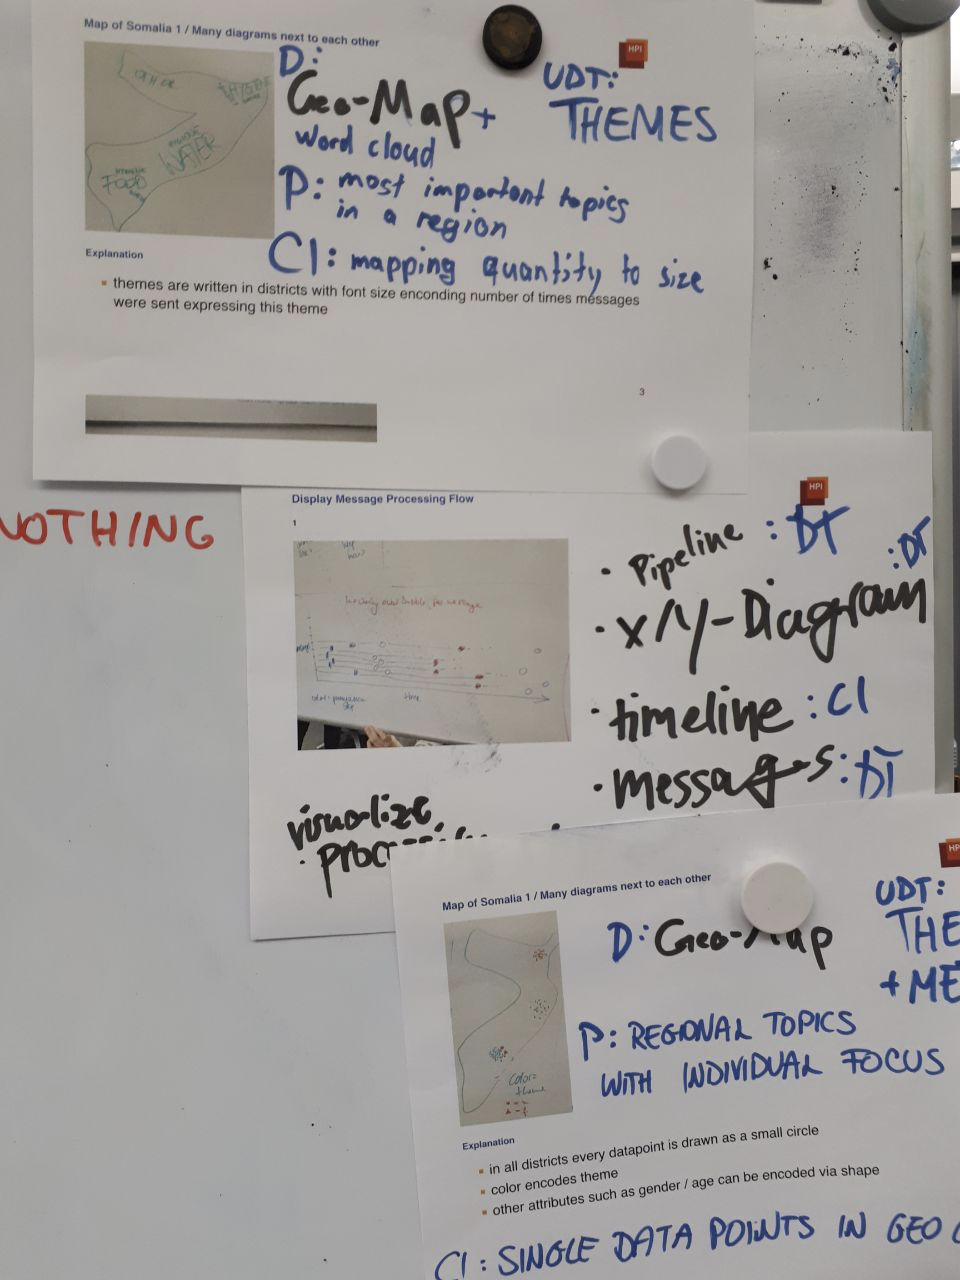 Map of Somalia 1 / Many diagrams next to each other
HPI
D:
Geo-Map +
word cloud
UDT:
THEMES
P: most important topics
in a region
CI: mapping quantity to size
OTHER
WATER
FOOD
Explanation
themes are written in districts with font size enconding number of times messages
were sent expressing this theme
3
NOTHING
Display Message Processing Flow
HPI
1
time
• Pipeline : DT
• x/y-Diagram : DT
• timeline : CI
• messages : DT
visualize
Map of Somalia 1 / Many diagrams next to each other
HP
D: Geo-Map
UDT:
THE
+ ME
P: REGIONAL TOPICS
WITH INDIVIDUAL FOCUS
Color=
theme
Explanation
in all districts every datapoint is drawn as a small circle
color encodes theme
other attributes such as gender / age can be encoded via shape
CI: SINGLE DATA POINTS IN GEO